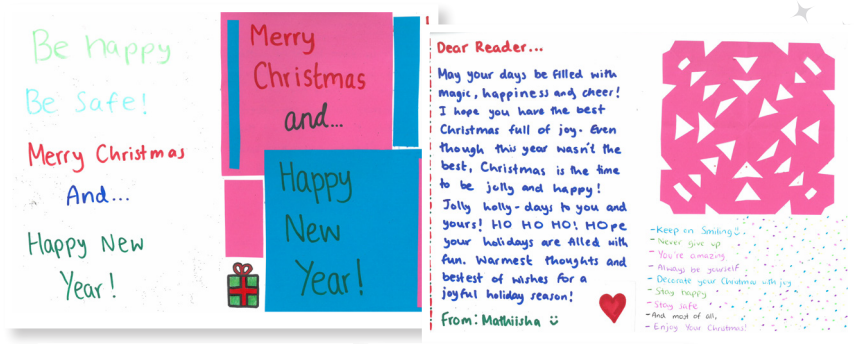 Be happy
Be Safe!
Merry Christmas
And...
Happy New
Year!
Merry
Christmas
and...
Happy
New
Year!
Dear Reader...
May your days be filled with
magic, happiness and cheer!
I hope you have the best
Christmas full of joy. Even
though this year wasn't the
best, Christmas is the time
to be jolly and happy!
Jolly holly-days to you and
yours! HO HO HO! HOpe
your holidays are filled with
fun. Warmest thoughts and
bestest of wishes for a
joyful holiday season!
From: Mathiisha
- Keep on Smiling
- Never give up
- You're amazing
- Always be yourself
- Decorate your Christmas with joy
- Stay happy
- Stay safe
- And most of all,
- Enjoy Your Christmas!